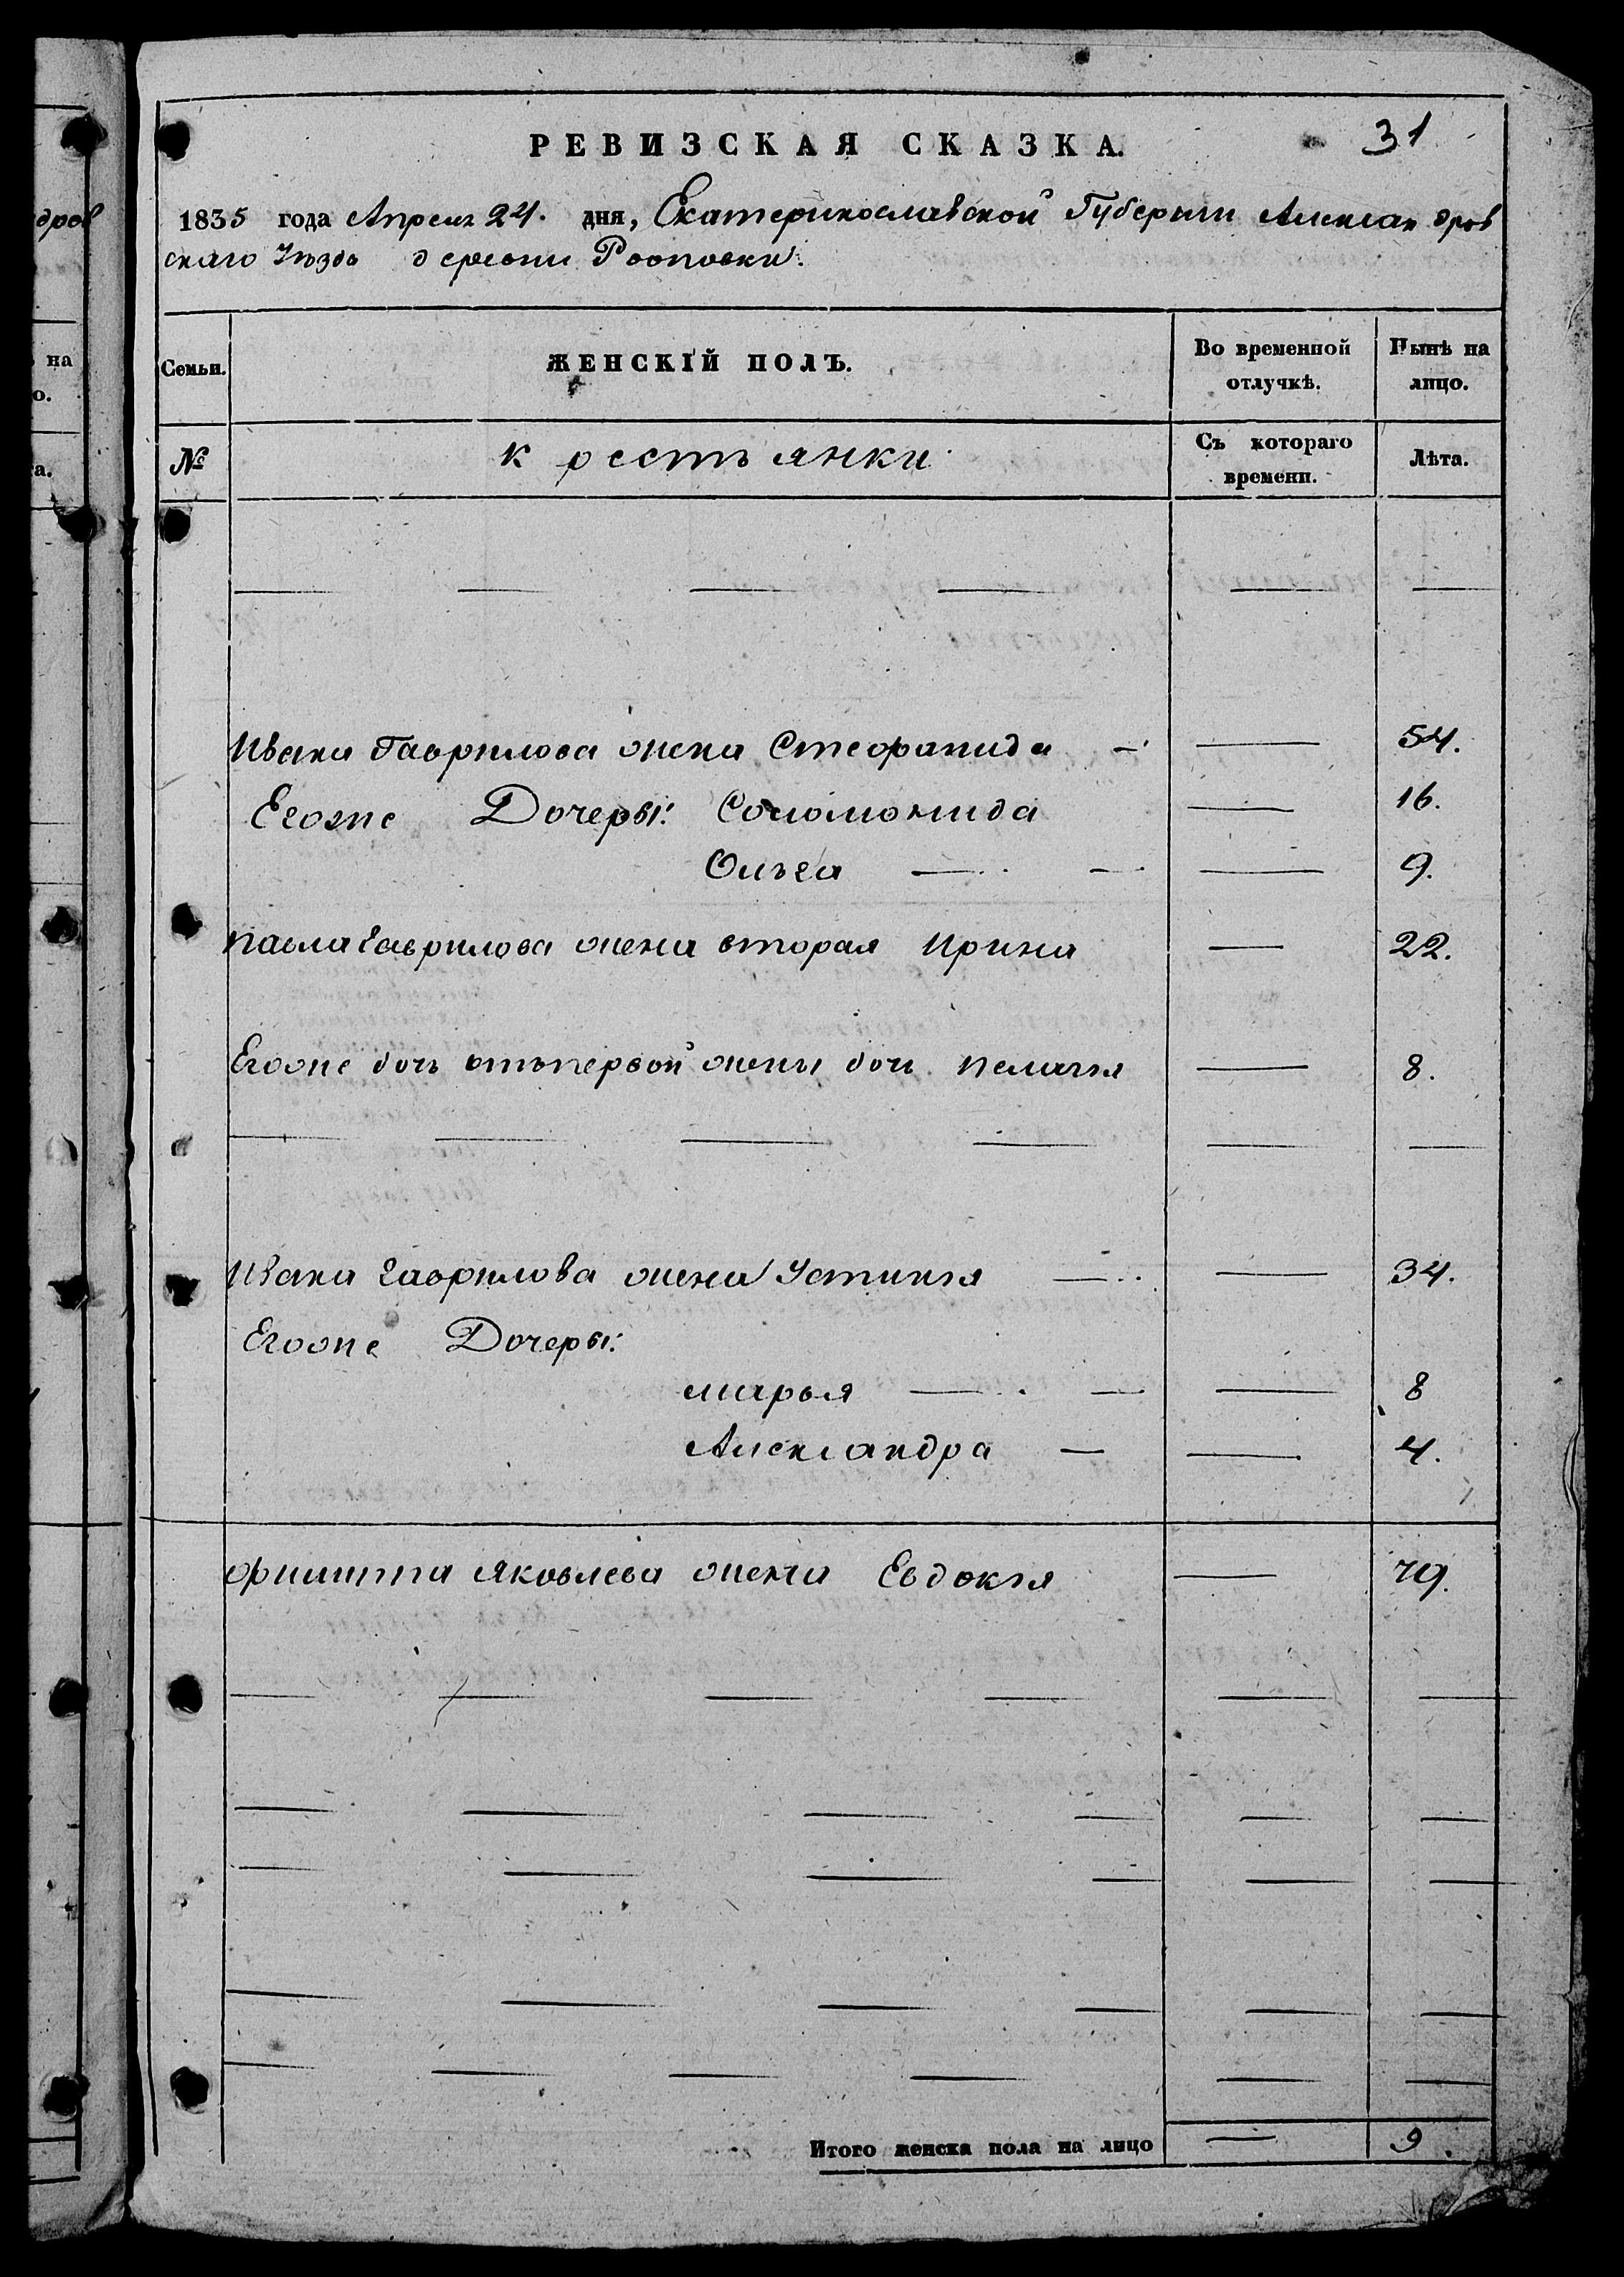 дров
на
о.
а.
РЕВИЗСКАЯ СКАЗКА.
31
1835 года Апреля 24. дня, Екатеринославской Губернии Александров
скаго Уѣзда деревни
Семьи.
ЖЕНСКІЙ ПОЛЪ.
Во временной отлучкѣ.
Нынѣ на лицо.
№
крестъянки
Съ котораго времени.
Лѣта.
Ивана Гаврилова жена Стефанида — — 54.
Егоже Дочеры: Соломонида — 16.
Ольга — — — 9.
павла гаврилова жена вторая Ирина — 22.
Егоже дочь отъпервой жены доч. пелагия — 8.
Ивана гаврилова жена Устинія — — 34.
Егоже Дочеры:
марья — — — 8
Александра — — 4.
филиппа яковлева жена Евдокія — 79.
Итого женска пола на лицо — 9.